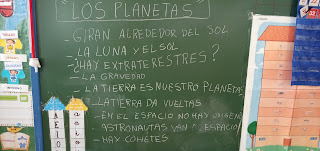 "LOS PLANETAS"
- GIRAN ALREDEDOR DEL SOL
- LA LUNA Y EL SOL
- ¿HAY EXTRATERESTRES?
- LA GRAVEDAD
- LA TIERRA ES NUESTRO PLANETAS
- LA TIERRA DA VUELTAS
- EN EL ESPACIO NO HAY OXIGENO
- ASTRONAUTAS VAN ESPACIO
- HAY COHETES
A
E
I
O
a
e
i
o